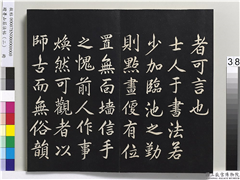 者可言也
士人于書法若
少加臨池之勤
則點畫便有位
置無面墻信手
之愧前人作事
煥然可觀者以
師古而無俗韻
38